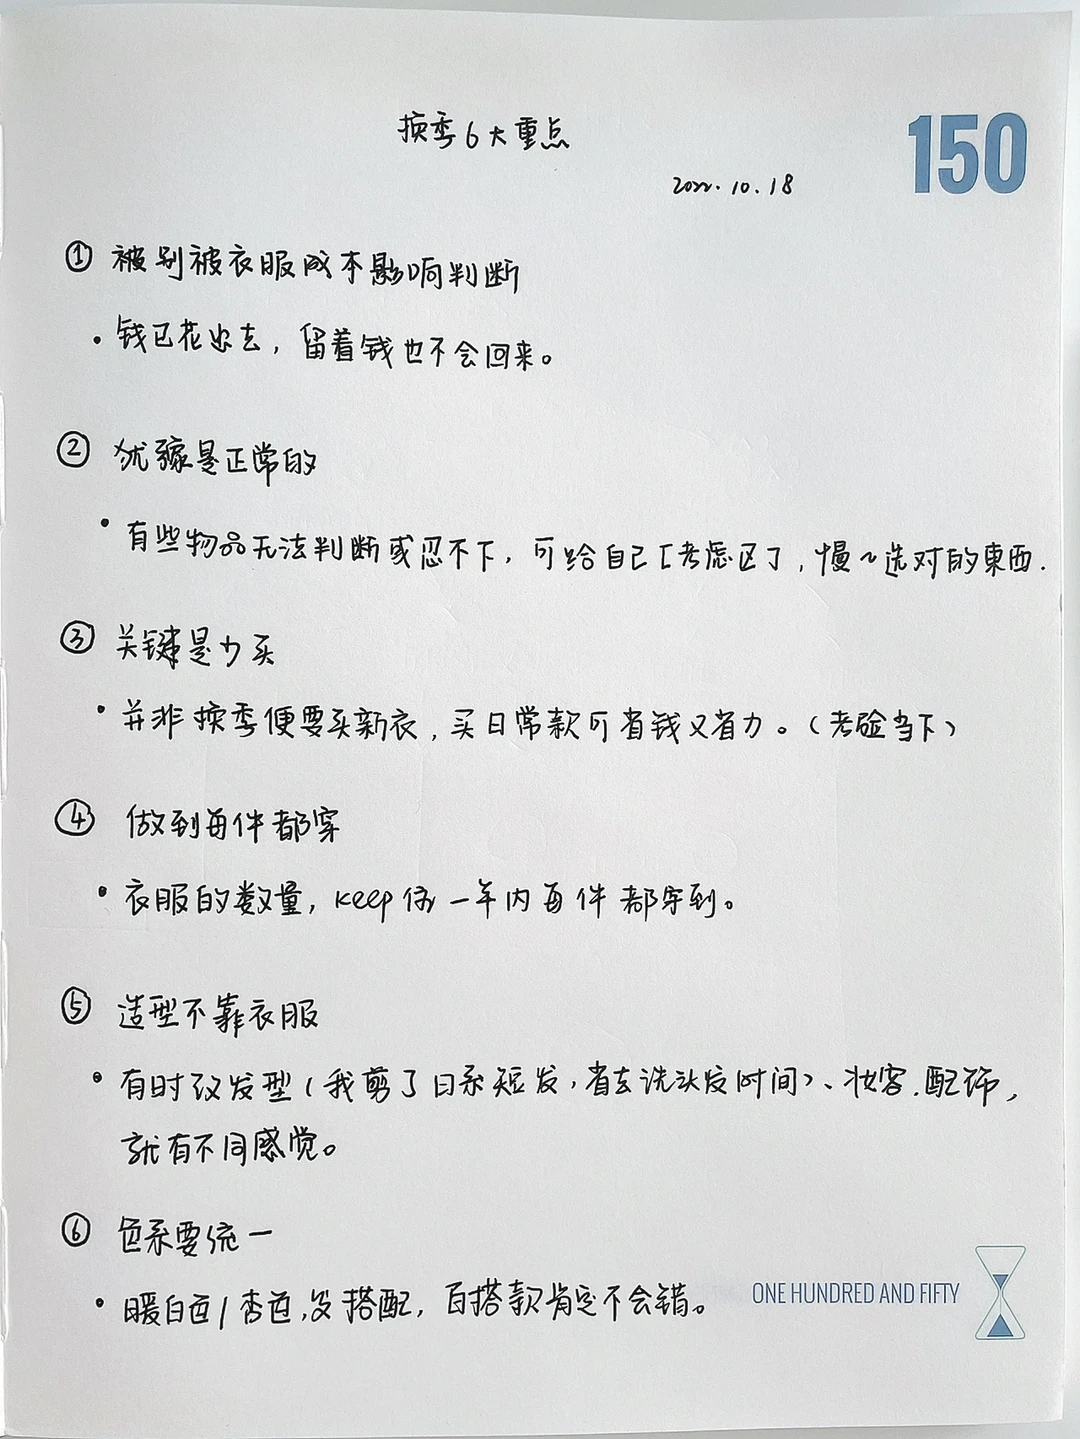 换季6大重点
150
2022.10.18
① 被别被衣服成本影响判断
· 钱已花出去，留着钱也不会回来。
② 犹豫是正常的
· 有些物品无法判断或忍不下，可给自己[考虑区]，慢~选对的東西.
③ 关键是少买
· 并非换季便要买新衣，买日常款可省钱又省力。（考验当下）
④ 做到每件都穿
· 衣服的数量，keep 在一年内每件都穿到。
⑤ 造型不靠衣服
· 有时改发型（我剪了日系短发，省去洗头发时间）、妆容、配饰，
就有不同感觉。
⑥ 色系要统一
· 暖白色/杏色，好搭配，百搭款肯定不会错。
ONE HUNDRED AND FIFTY